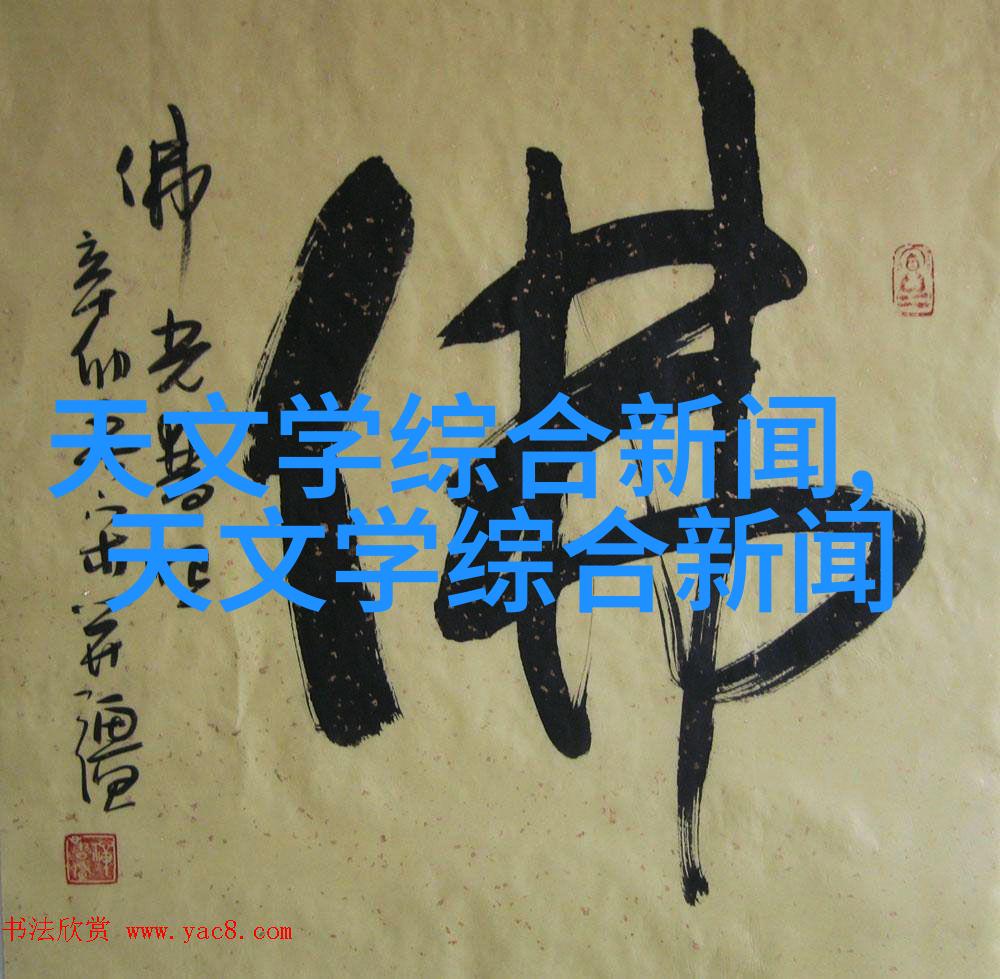 佛
佛光普照
辛卯
天文学综合新闻,
天文学综合新闻
书法欣赏 www.yac8.com